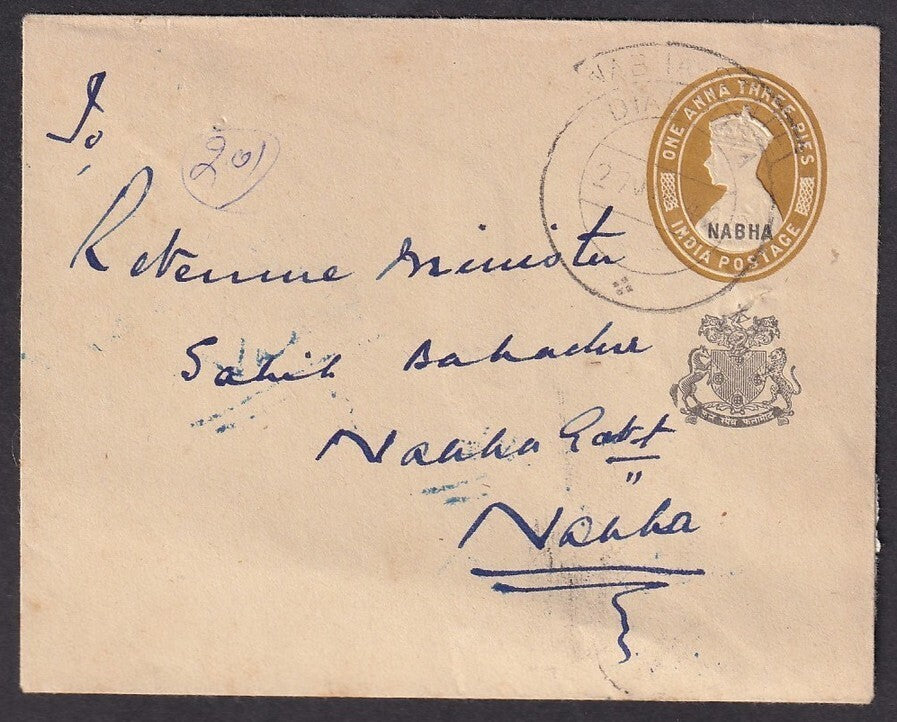 To,
201
Revenue Minister
Sahib Bahadur
Nabha Govt
Nabha
ONE ANNA THREE PIES
INDIA POSTAGE
NABHA